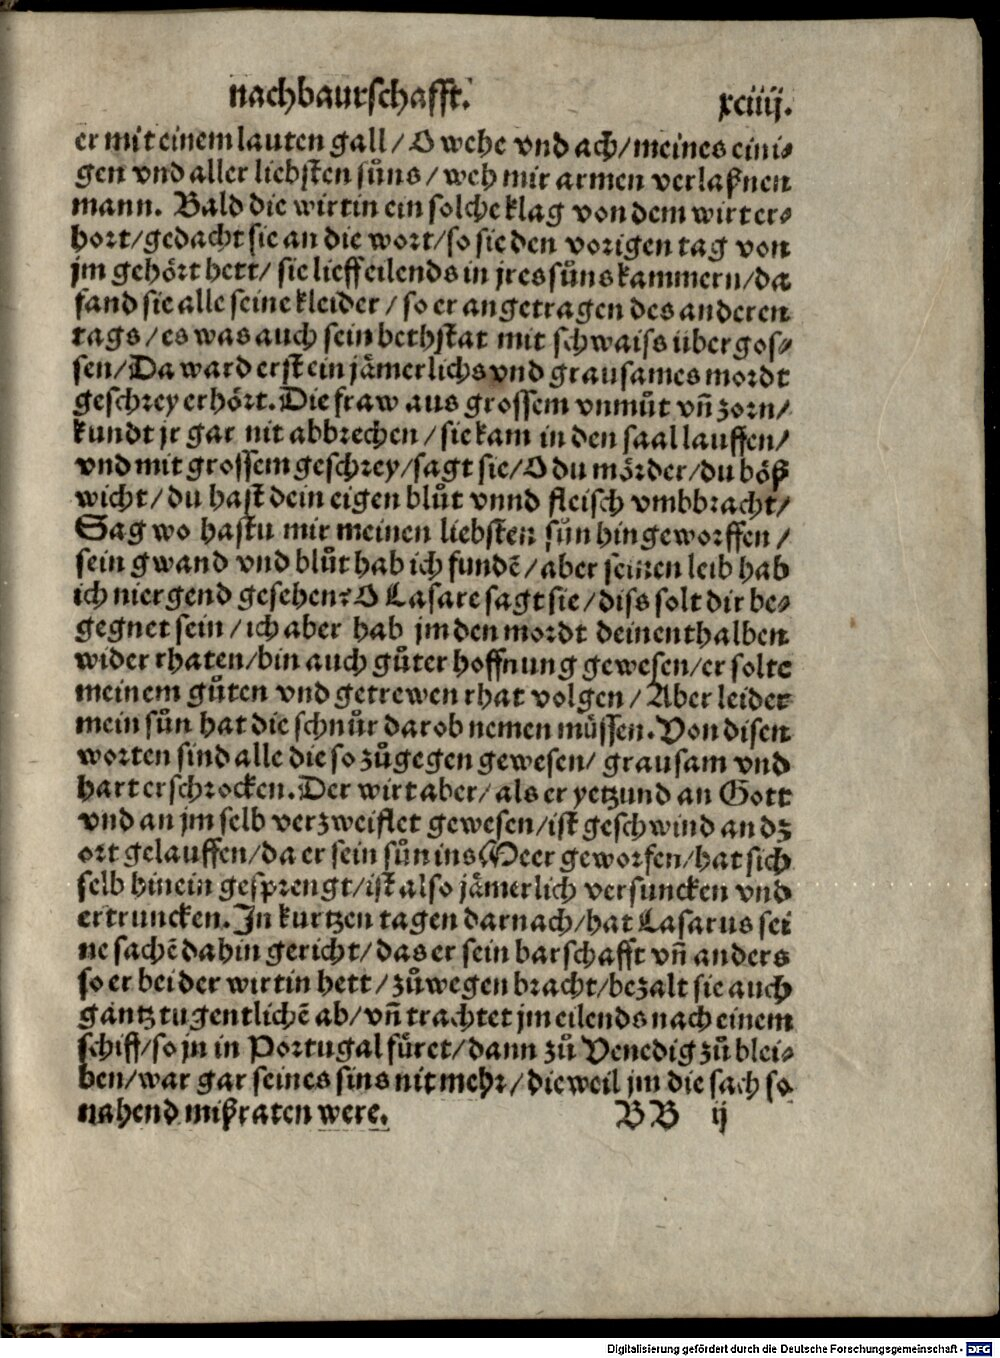 nachbaurschafft. xciiij.
er mit einem lauten gall / O wehe vnd ach / meines eini⸗
gen vnd aller liebsten sůns / weh mir armen verlaßnen
mann. Bald die wirtin ein solche klag von dem wirt er⸗
hort / gedacht sie an die wort / so sie den vorigen tag von
jm gehört hett / sie lieff eilends in jres sůns kammern / da
fand sie alle seine kleider / so er angetragen des anderen
tags / es was auch sein bethstat mit schwaiss übergos⸗
sen / Da ward erst ein jämerlichs vnd grausames mordt
geschrey erhört. Die fraw aus grossem vnmůt vñ zorn /
kundt jr gar nit abbrechen / sie kam in den saal lauffen /
vnd mit grossem geschrey / sagt sie / O du mörder / du böß
wicht / du hast dein eigen blůt vnnd fleisch vmbbracht /
Sag wo hastu mir meinen liebsten sůn hin geworffen /
sein gwand vnd blůt hab ich fundē / aber seinen leib hab
ich niergend gesehen? O Lasare sagt sie / diss solt dir be⸗
gegnet sein / ich aber hab jm den mordt deinenthalben
wider rhaten / bin auch gůter hoffnung gewesen / er solte
meinem gůten vnd getrewen rhat volgen / Aber leider
mein sůn hat die schnůr darob nemen müssen. Von disen
worten sind alle die so zůgegen gewesen / grausam vnd
hart erschrocken. Der wirt aber / als er yetzund an Gott
vnd an jm selb verzweiflet gewesen / ist geschwind an dz
ort gelauffen / da er sein sůn ins Meer geworfen / hat sich
selb hinein gesprengt / ist also jämerlich versuncken vnd
ertruncken. In kurtzen tagen darnach / hat Lasarus sei
ne sachē dahin gericht / das er sein barschafft vñ anders
so er bei der wirtin hett / zůwegen bracht / bezalt sie auch
gantz tugentlichē ab / vñ trachtet jm eilends nach einem
schiff / so jn in Portugal fůret / dann zů Venedig zů blei⸗
ben / war gar seines sins nit mehr / die weil jm die sach so
nahend mißraten were. BB ij
Digitalisierung gefördert durch die Deutsche Forschungsgemeinschaft - DFG